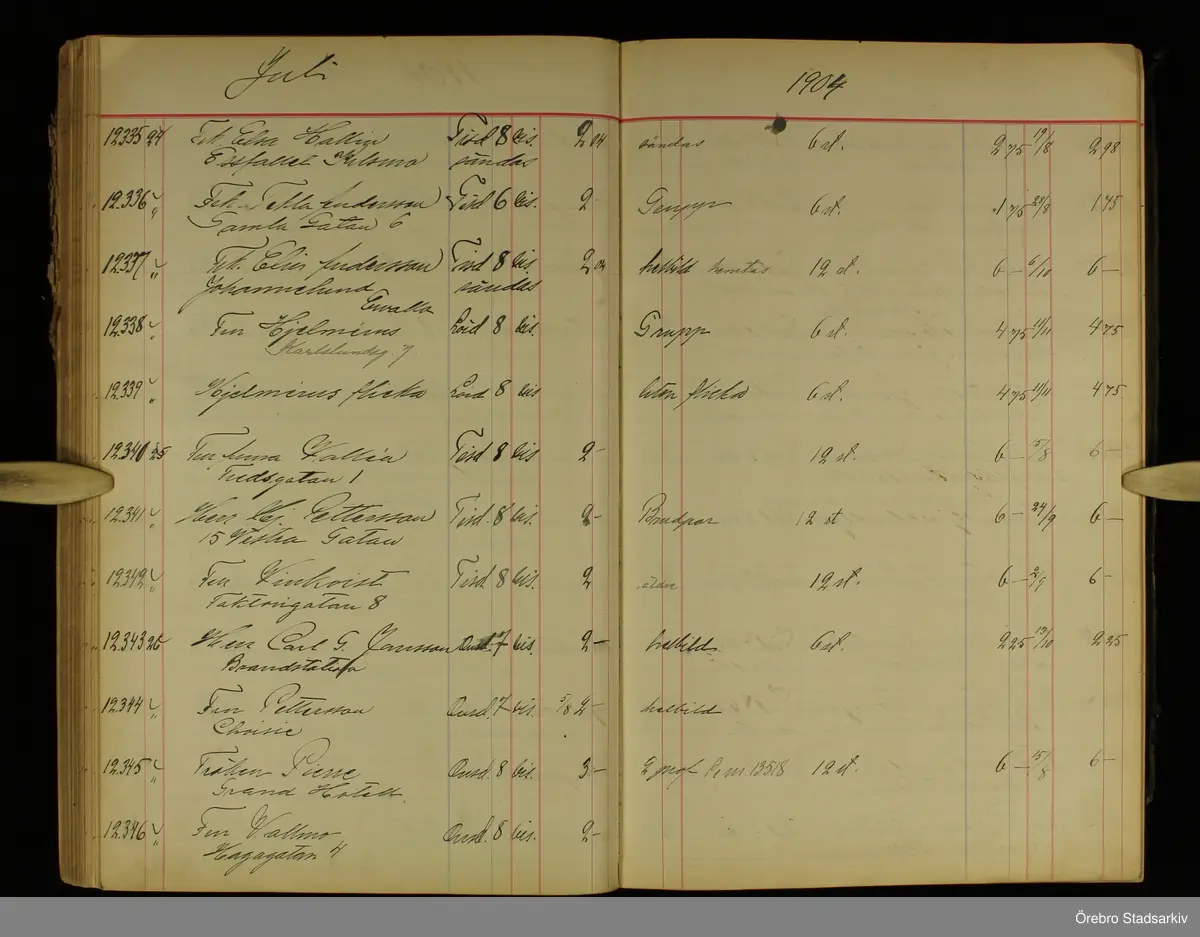 Juli 1904
12335 24 Frk. Elsa Hallin Tisd 8 vis. 2 04 sändas 6 st. 2 75 19/8 2 98
sändas
12.336 " Frk. Tekla Andersson Tisd 6 vis. 2 - Grupp 6 st. 1 75 1 75
Gamla Gatan 6
12337 " Frk. Elin Andersson Tisd 8 vis. 2 04 helbild hemtas 12 st. 6 - 6/10 6 -
Johannelund sändas
12.338 " Fru Hjelmérus Lörd 8 vis. Grupp 6 st. 4 75 11/11 4 75
Karlslundsg 7
12.339 " Hjelmérus flicka Lörd 8 vis liten flicka 6 st. 4 75 11/11 4 75
12.340 25 Fru Anna Tisd 8 vis 2 - 12 st. 6 - 15/8 6 -
Fredsgatan 1
12.341 " Herr Hj. Pettersson Tisd. 8 vis. 2 - Brudpar 12 st 6 - 24/9 6 -
15 Västra Gatan
12.342 " Fru Tisd. 8 vis. 2 äldre 12 st. 6 - 6 -
Faktorigatan 8
12.343 26 Herr Carl G. Jansson Onsd. 7 vis. 2 - helbild 6 st. 2 25 13/10 2 25
Brandstation
12.344 " Fru Pettersson Onsd. 7 vis. 5/8 2 - helbild
12.345 " Fröken Onsd. 8 vis. 3 - 2 prof 13518 12 st. 6 - 15/8 6 -
Grand Hotell.
12.346 " Fru Wallmo Onsd. 8 vis. 2 -
Hagagatan 4
Örebro Stadsarkiv